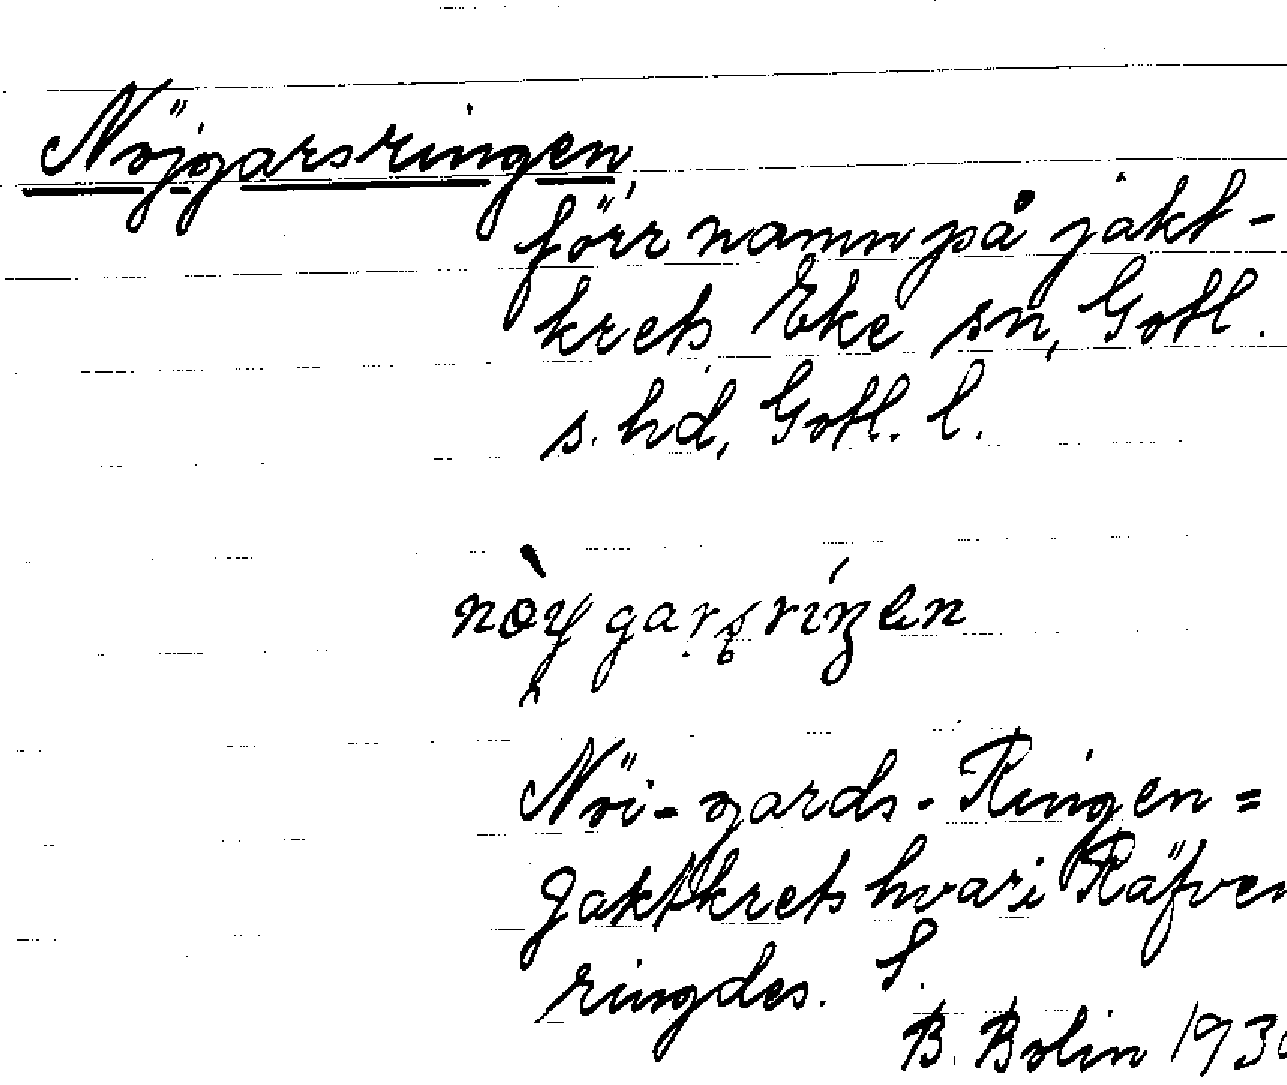 Nöjgarsringen,
förr namn på jakt-
krets Eke sn, Gotl.
s. hd, Gotl. l.
Nöi-gards-Ringen =
Jaktkrets hvari Räfven
ringdes. S.
B. Bolin 193